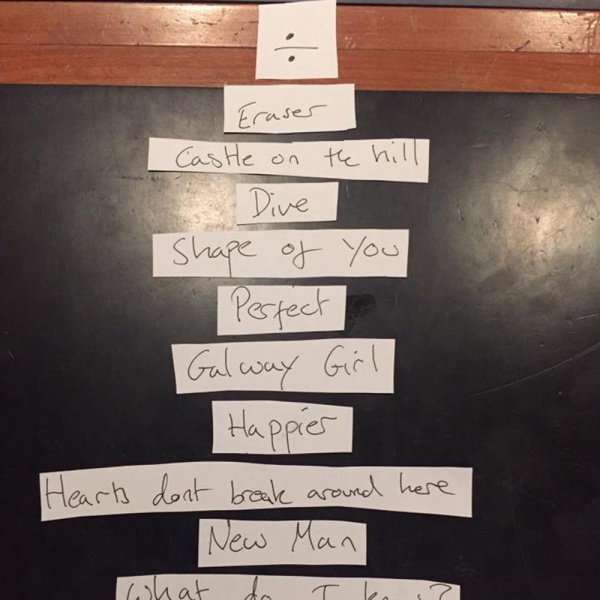 ÷
Eraser
Castle on the hill
Dive
Shape of You
Perfect
Galway Girl
Happier
Hearts dont break around here
New Man
What do I know?